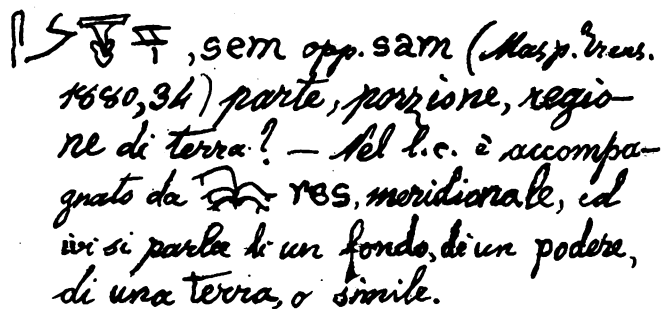 , sem opp. sam (Masp. Trans.
1880,34) parte, porzione, regio-
ne di terra? — Nel l.c. è accompa-
gnato da res, meridionale, ed
ivi si parla di un fondo, di un podere,
di una terra, o simile.